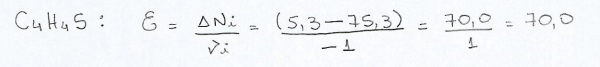 C4H4S : ε = ΔNi / νi = (5,3 − 75,3) / −1 = 70,0 / 1 = 70,0